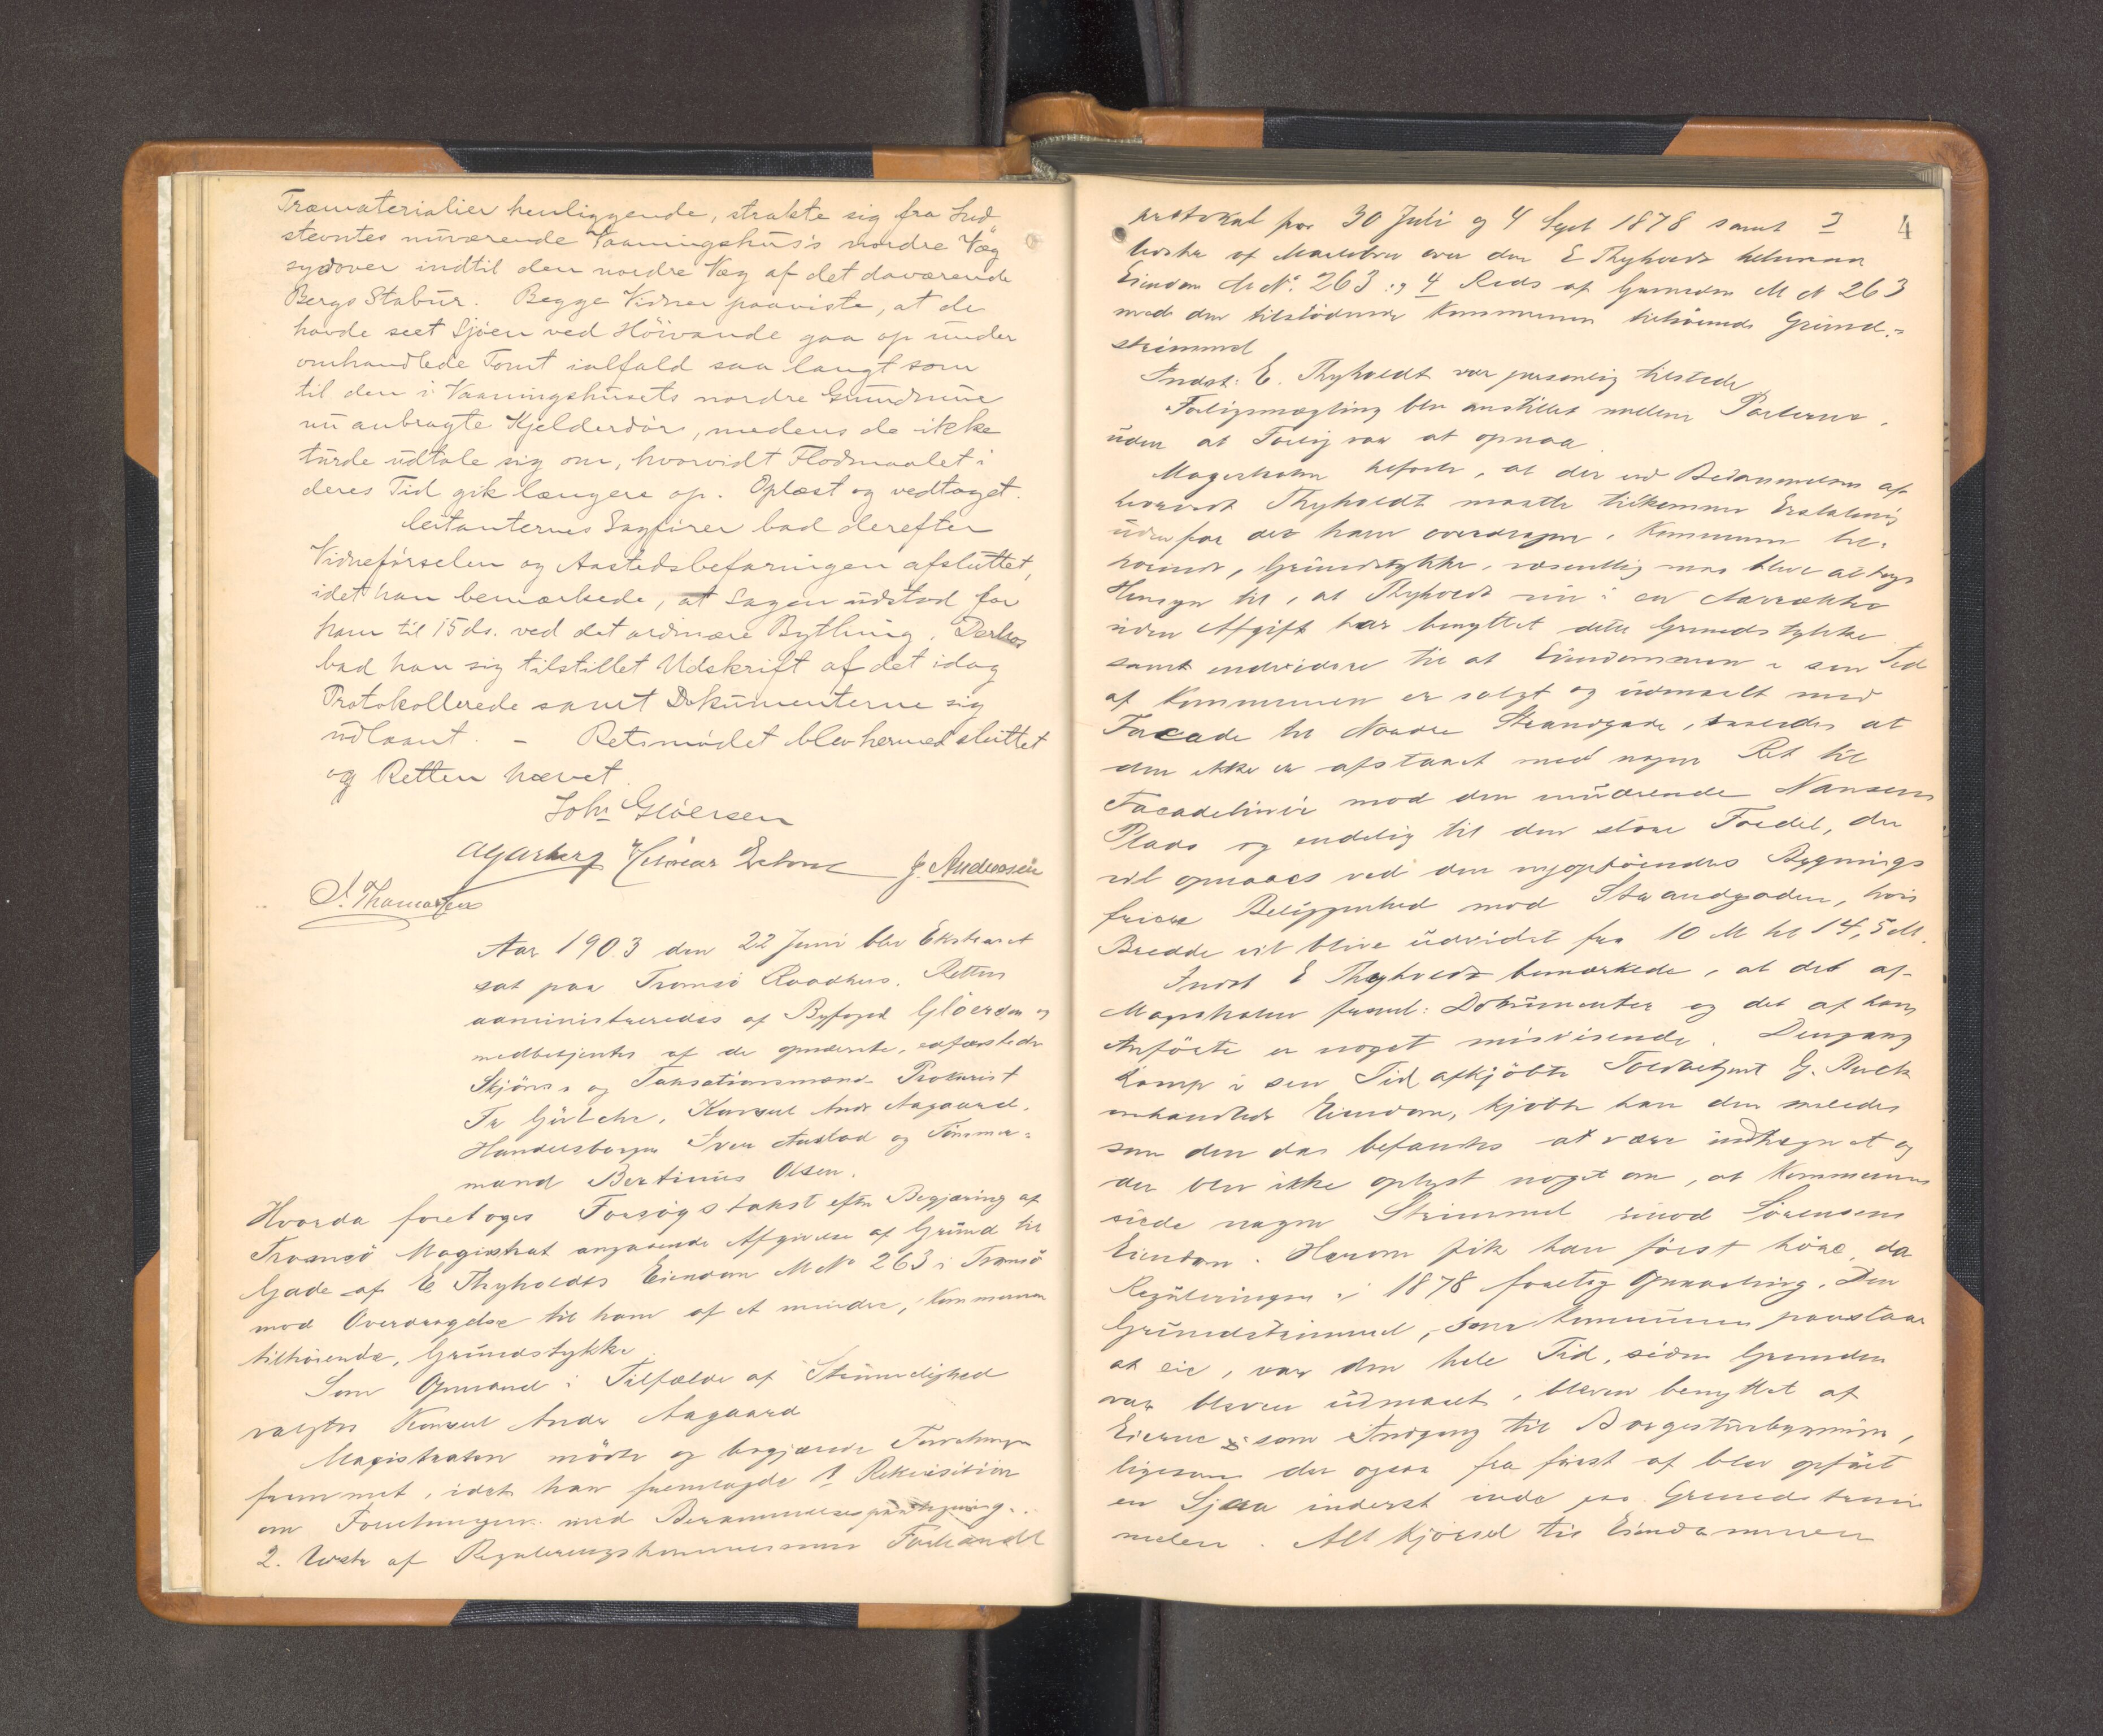 Træmaterialier henliggende, strakte sig fra Ind
stevntes nuværende Vaaningshus's nordre Væg
sydover indtil den nordre Væg af det daværende
Bergs Stabur. Begge Vidner paaviste, at de
havde seet Sjøen ved Høivande gaa op under
omhandlede Tomt ialfald saa langt som
til den i Vaaningshusets nordre Grundmur
nu anbragte Kjelderdør, medens de ikke
turde udtale sig om, hvorvidt Flodmaalet i
deres Tid gik længere op. Oplæst og vedtaget.
Citanternes Sagfører bad derefter
Vidneførselen og Aastedsbefaringen afsluttet,
idet han bemærkede, at Sagen udstod for
ham til 15 ds. ved det ordinære Bything. Derhos
bad han sig tilstillet Udskrift af det idag
Protokollerede samt Dokumenterne sig
udlaant. – Retsmødet blev hermed sluttet
og Retten hævet.
Joh. Gløersen
J. Andreassen
Aar 1903 den 22 Juni blev Ekstraret
sat paa Tromsø Raadhus. Retten
administreredes af Byfoged Gløersen og
medbetjentes af de opnævnte, edfæstede
Skjøns og Taksationsmænd Prokurist
Konsul Andr Aagaard,
Handelsborger Iver Austad og Tømmer-
mand Bertinius Olsen.
Hvorda foretoges Forsøgstakst efter Begjæring af
Tromsø Magistrat angaaende Afgivelse af Grund til
Gade af E Thyholdts Eiendom M No 263 i Tromsø
mod Overdragelse til ham af et mindre, Kommunen
tilhørende, Grundstykke
Som Opmand i Tilfælde af Stemmelighed
valgtes Konsul Andr Aagaard
Magistraten mødte og begjærede Forretningen
fremmet, idet han fremlagde 1 Rekvisition
om Forretningen med Berammelsespaategning.
2. Udskr af Reguleringskommissionens Forhandl
4
protokol for 30 Juli og 4 Sept 1878 samt 3
af Maalebrev over den E Thyholdt tilhørende
Eiendom M No. 263 og 4 Rids af Grunden M N 263
med den tilstødende Kommunen tilhørende Grund-
strimmel
Indst: E. Thyholdt var personlig tilstede
Forligsmægling blev anstillet mellem Parterne,
uden at Forlig var at opnaa.
at der ved Bedømmelsen af
hvorvidt Thyholdt maatte tilkomme Erstatning
udenfor det ham overdragne, Kommunen til-
hørende, Grundstykke, væsentlig maa blive at tage
Hensyn til, at Thyholdt nu i en Aarrække
uden Afgift har benyttet dette Grundstykke
samt endvidere til at Eiendommen i sin Tid
af Kommunen er solgt og udmaalt med
Facade til Nordre Strandgade, saaledes at
den ikke er afstaaet med nogen Ret til
Facadelinie mod den nuværende Nansens
Plads og endelig til den store Fordel, der
vil opnaaes ved den nyopførendes Bygnings
friere Beliggenhed mod Strandgaden, hvis
Bredde vil blive udvidet fra 10 M til 14,5 M.
Indst E Thyholdt bemærkede, at det af
freml: Dokumenter og det af ham
Anførte er noget misvisende. Dengang
Komp i sin Tid afkjøbte Toldbetjent G. Buck
omhandlede Eiendom, kjøbte han den saaledes
som den da befandtes at være indhegnet og
der blev ikke oplyst noget om, at Kommunen
eiede nogen Strimmel imod Sørensens
Eiendom. Herom fik han først høre, da
Reguleringen i 1878 foretog Opmaaling. Den
Grundstrimmel, som Kommunen paastaar
at eie, var den hele Tid, siden Grunden
var bleven udmaalt, bleven benyttet af
Eierne som Indgang til Borgestuebygningen,
ligesom der ogsaa fra først af blev opført
en Sjaa inderst inde paa Grundstrim
melen. Alt Kjørsel til Eiendommen